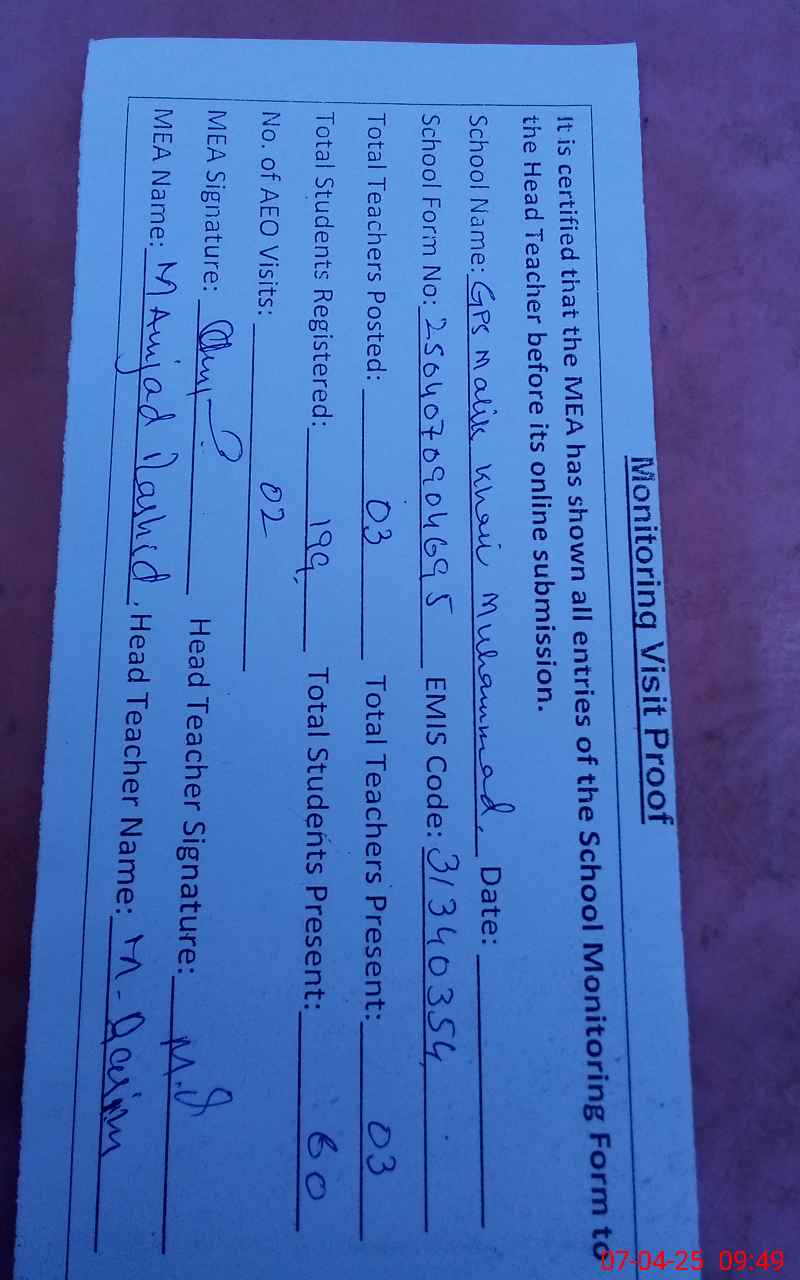 Monitoring Visit Proof
It is certified that the MEA has shown all entries of the School Monitoring Form to
the Head Teacher before its online submission.
School Name: GPS Malik Khair Muhammad. Date:
School Form No: 256407090469 5 EMIS Code: 31340354
Total Teachers Posted: 03 Total Teachers Present: 03
Total Students Registered: 199 Total Students Present: 60
No. of AEO Visits: 02
MEA Signature: Head Teacher Signature:
MEA Name: M Amjad Rashid. Head Teacher Name: M.
07-04-25 09:49